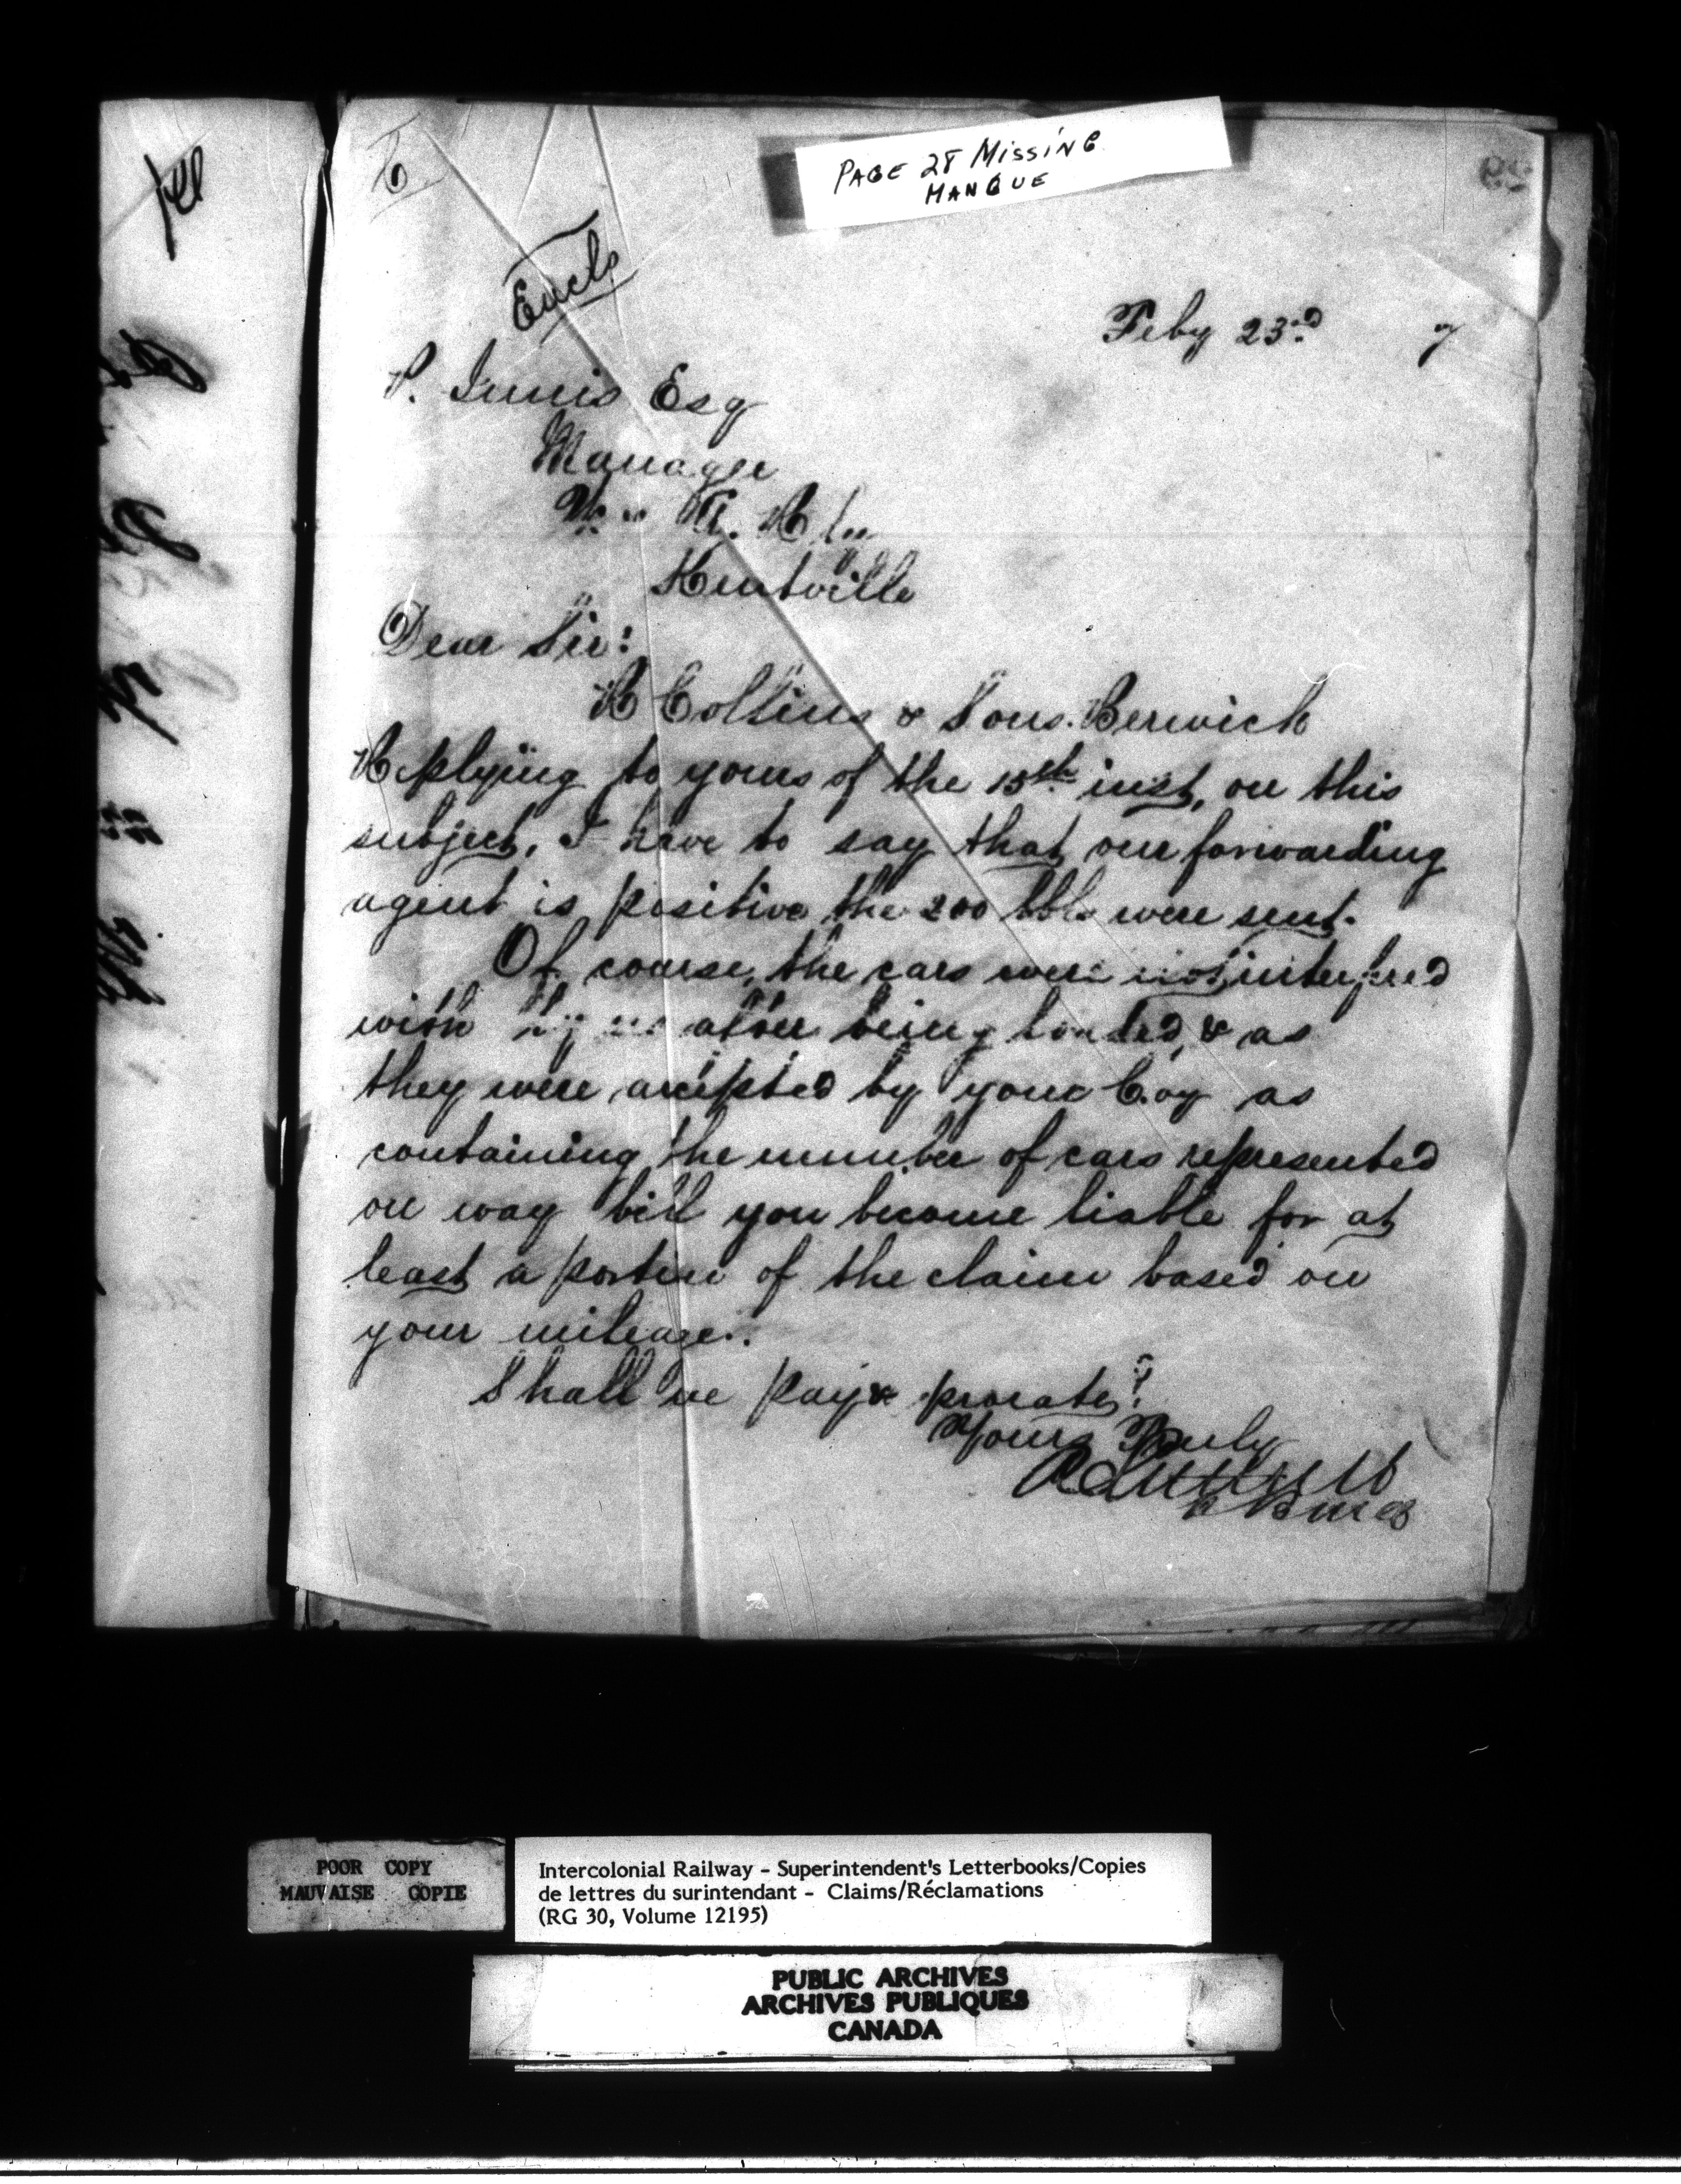 PAGE 28 MISSING
MANQUE
Encls
Feby 23rd 7
P. Innis Esq
Manager
W. & A. R
Kentville
Dear Sir:
R Collins & Sons. Berwick
Replying to yours of the 15th inst, on this
subject, I have to say that our forwarding
agent is positive the 200 bbls were sent.
Of course, the cars were not interfered
with by us after being loaded, & as
they were accepted by your Coy as
containing the number of cars represented
on way bill you become liable for at
least a portion of the claim based on
your mileage.
Shall we pay & prorate?
Yours Truly
POOR COPY
MAUVAISE COPIE
Intercolonial Railway - Superintendent's Letterbooks/Copies
de lettres du surintendant - Claims/Réclamations
(RG 30, Volume 12195)
PUBLIC ARCHIVES
ARCHIVES PUBLIQUES
CANADA